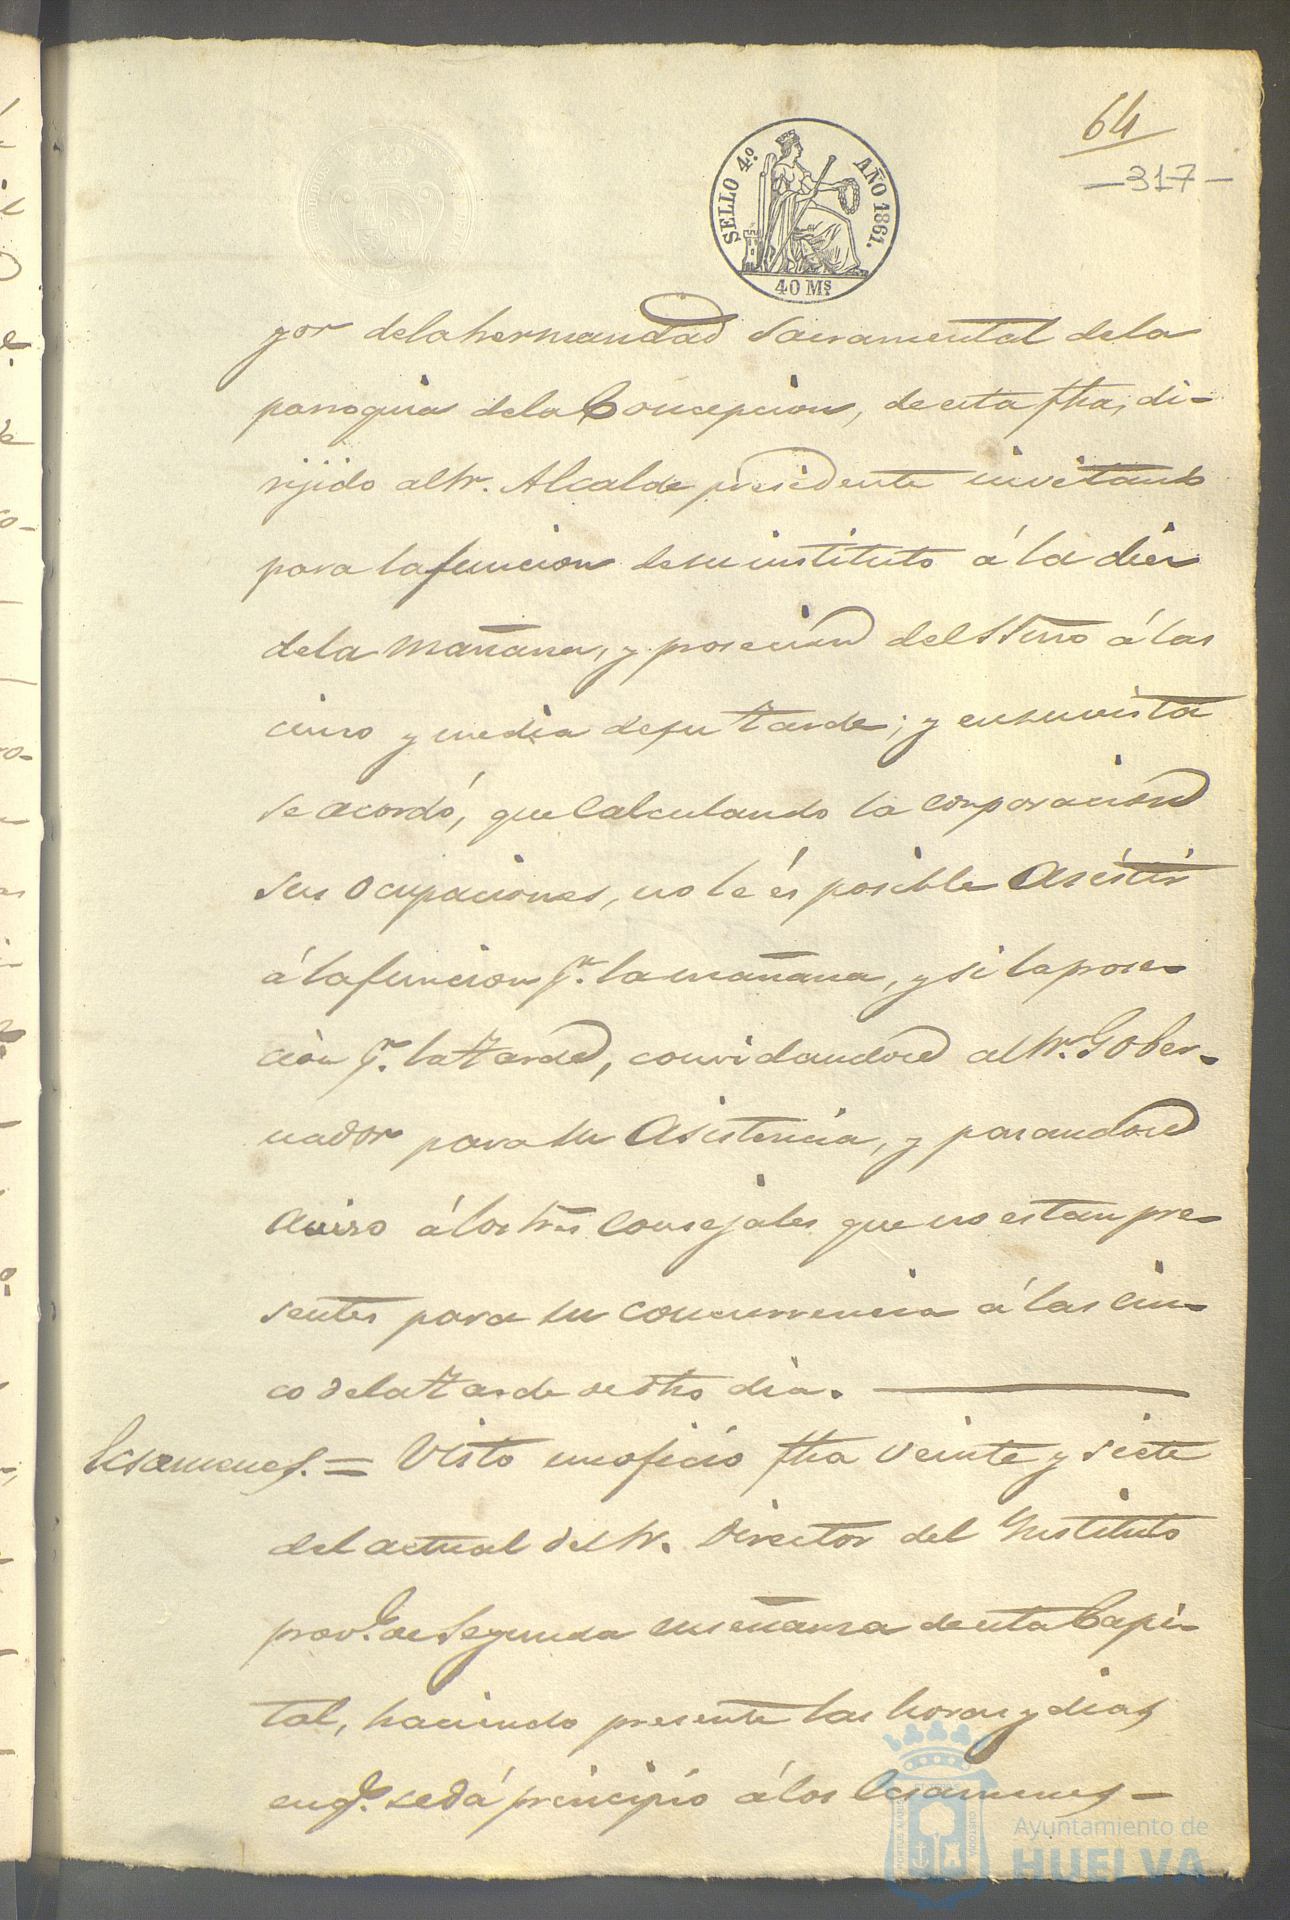 64
-317-
SELLO 4.º AÑO 1861.
40 Ms
yor dela hermandad Sacramental dela
parroquia dela Concepcion, de esta fha, di-
rijido al Sr. Alcalde presidente invitando
para la funcion de su instituto á la diez
dela mañana, y prosecion del SSmo á las
cinco y media de su tarde; y en su vista
se acordó, que calculando la corporacion
sus ocupaciones, no le és posible asistir
á la funcion pr. la mañana, y si la prose-
cion pr. la tarde, convidandose al Sr. Gober-
nador para su asistencia, y pasandose
aviso á los tres Consejales que no estan pre-
sentes para su concurrencia á las cin-
co dela tarde de dho dia.
Ecsamenes. = Visto un oficio fha veinte y siete
del actual del Sr. Director del Instituto
provl. de Segunda enseñanza de esta Capi-
tal, haciendo presente las horas y dias
en qe. se dá principio á los Ecsamenes -
Ayuntamiento de
HUELVA